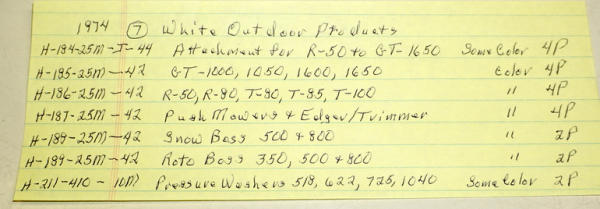 1974 (7) White Outdoor Products
H-184-25M-J-44 Attachment for R-50 to GT-1650 Some Color 4P
H-185-25M-42 GT-1000, 1050, 1600, 1650 Color 4P
H-186-25M-42 R-50, R-80, T-80, T-85, T-100 " 4P
H-187-25M-42 Push Mowers & Edger/Trimmer " 4P
H-189-25M-42 Snow Boss 500 & 800 " 2P
H-199-25M-42 Roto Boss 350, 500 & 800 " 2P
H-211-410-10M Pressure Washers 518, 622, 725, 1040 Some Color 2P